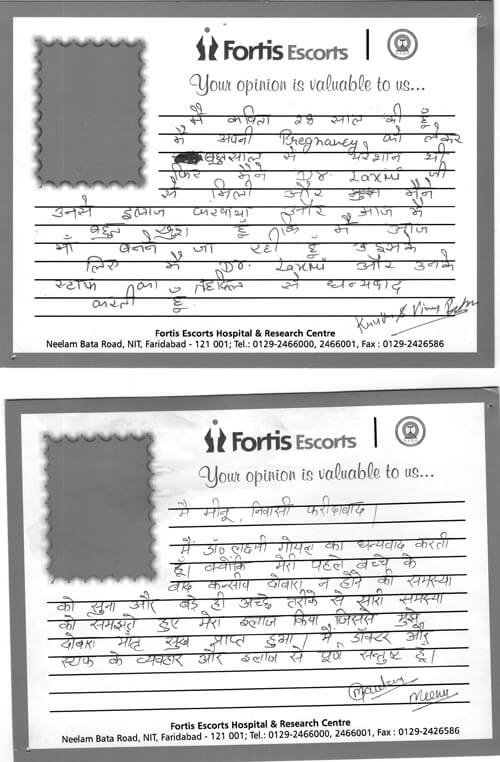 Fortis Escorts
Your opinion is valuable to us...
मैं कविता 28 साल की हूँ
मैं अपनी Pregnancy को लेकर
साल से परेशान थी
फिर मैंने Dr. Laxmi जी
से मिली और मैंने
उनसे इलाज करवाया और आज मैं
बहुत खुश हूँ कि मैं आज
माँ बनने जा रही हूँ इसके
लिए मैं Dr. Laxmi और उनके
स्टाफ का तहेदिल से धन्यवाद
करती हूँ
Fortis Escorts Hospital & Research Centre
Neelam Bata Road, NIT, Faridabad - 121 001; Tel.: 0129-2466000, 2466001, Fax : 0129-2426586
Fortis Escorts
Your opinion is valuable to us...
मैं मीनू, निवासी फरीदाबाद।
मैं डॉ० लक्ष्मी गोयल का धन्यवाद करती
हूँ। क्योंकि मेरी पहले बच्चे के
बाद कन्सीव दोबारा न होने की समस्या
को सुना और बड़े ही अच्छे तरीके से सारी समस्या
को समझते हुए मेरा इलाज किया जिससे मुझे
दोबारा मातृ सुख प्राप्त हुआ। मैं डॉक्टर और
स्टाफ के व्यवहार और इलाज से पूर्ण सन्तुष्ट हूँ।
Meenu
Fortis Escorts Hospital & Research Centre
Neelam Bata Road, NIT, Faridabad - 121 001; Tel.: 0129-2466000, 2466001, Fax : 0129-2426586